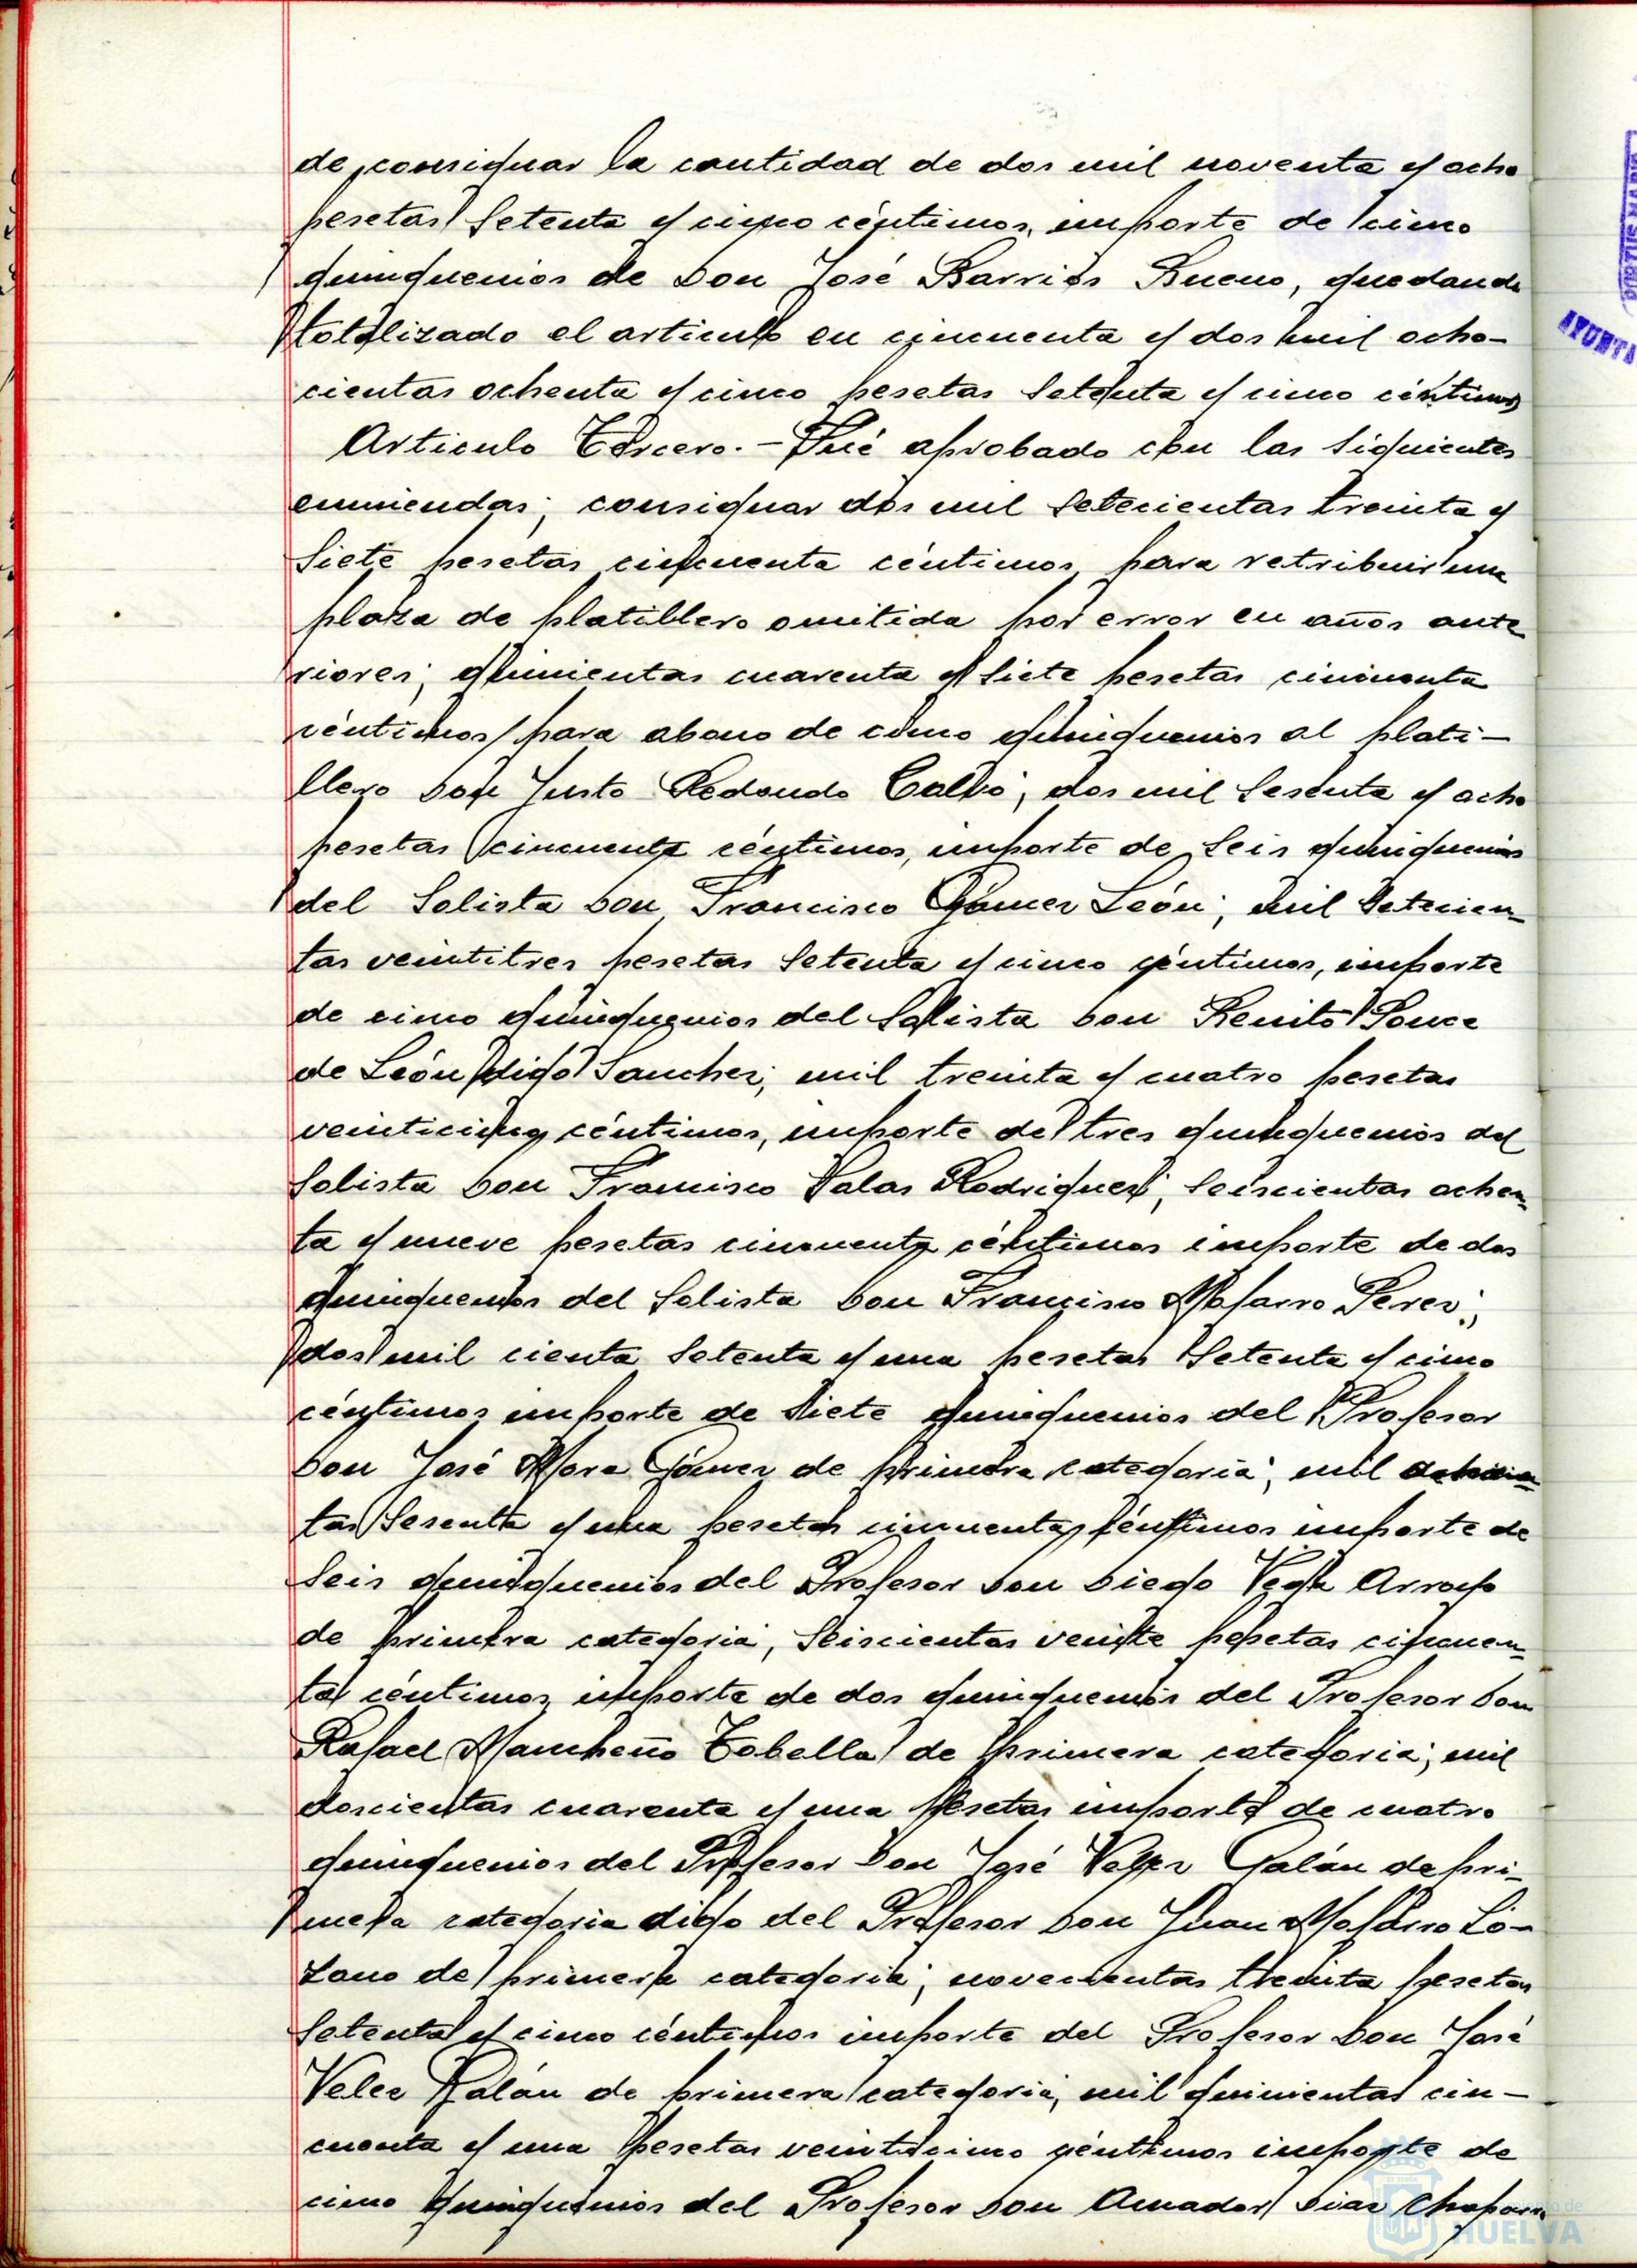 de consignar la cantidad de dos mil noventa y ocho
pesetas setenta y cinco céntimos, importe de cinco
quinquenios de Don José Barrios Bueno, quedando
totalizado el articulo en cincuenta y dos mil ocho-
cientas ochenta y cinco pesetas setenta y cinco céntimos
Articulo Tercero.- Fué aprobado con las siguientes
enmiendas; consignar dos mil setecientas treinta y
siete pesetas cincuenta céntimos para retribuir una
plaza de platillero omitida por error en años ante
riores; quinientas cuarenta y siete pesetas cincuenta
céntimos para abono de cinco quinquenios al plati-
llero Don Justo Redondo Calvo; dos mil sesenta y ocho
pesetas cincuenta céntimos, importe de seis quinquenios
del Solista Don Francisco Gómez León; mil setecien-
tas veintitres pesetas setenta y cinco céntimos, importe
de cinco quinquenios del Solista Don Benito Ponce
de León digo Sanchez; mil treinta y cuatro pesetas
veinticinco céntimos, importe de tres quinquenios del
Solista Don Francisco Salas Rodriguez; seiscientas ochen-
ta y nueve pesetas cincuenta céntimos importe de dos
quinquenios del Solista Don Francisco Mofarro Perez;
dos mil cienta setenta y una pesetas setenta y cinco
céntimos importe de siete quinquenios del Profesor
Don José Mora Gómez de primera categoria; mil
tas sesenta y una pesetas cincuenta céntimos importe de
seis quinquenios del Profesor Don Diego Vega Arroyo
de primera categoria, seiscientas veinte pesetas cincuen-
ta céntimos importe de dos quinquenios del Profesor Don
Rafael Mancheño Tobella de primera categoria; mil
doscientas cuarenta y una pesetas importe de cuatro
quinquenios del Profesor Don José Velez Galán de pri-
mera categoria digo del Profesor Don Juan Mofarro Lo-
zano de primera categoria; novecientas treinta pesetas
setenta y cinco céntimos importe del Profesor Don José
Velez Galán de primera categoria, mil quinientas cin-
cuenta y una pesetas veinticinco céntimos importe de
cinco quinquenios del Profesor Don Amador Diaz Chaparro
AYUNTA
HUELVA